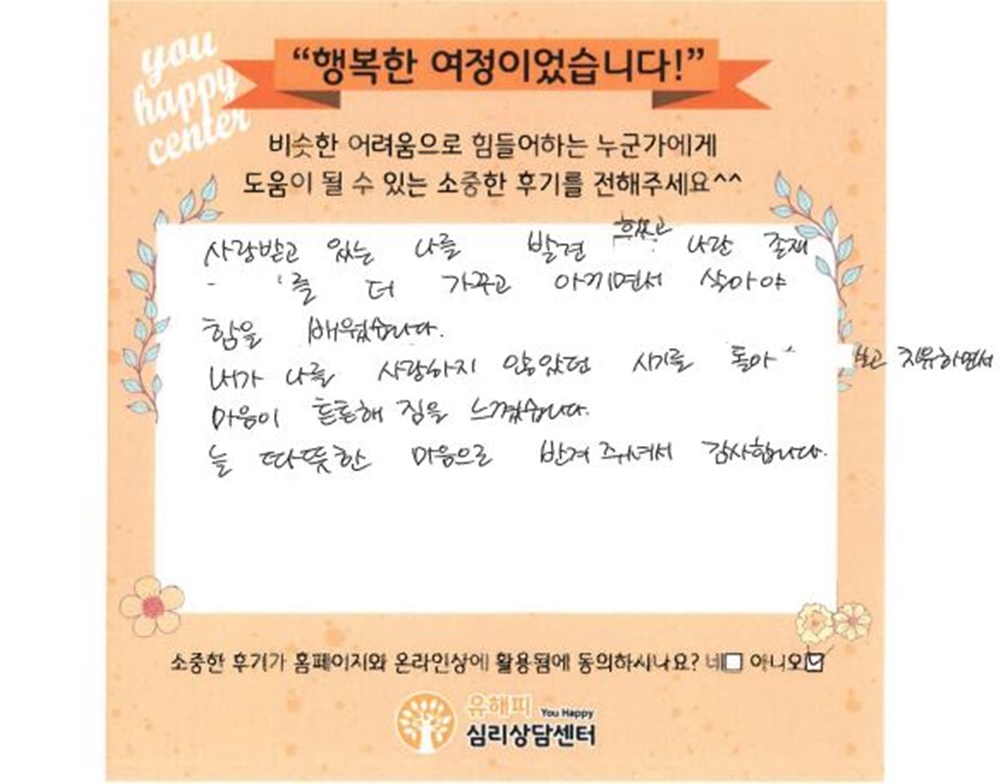 you
happy
center
“행복한 여정이었습니다!”
비슷한 어려움으로 힘들어하는 누군가에게
도움이 될 수 있는 소중한 후기를 전해주세요^^
사랑받고 있는 나를 발견 하고 나란 존재
를 더 가꾸고 아끼면서 살아야
함을 배웠습니다.
내가 나를 사랑하지 않았던 시기를 돌아 보고 치유하면서
마음이 튼튼해 짐을 느꼈습니다.
늘 따뜻한 마음으로 반겨 주셔서 감사합니다.
소중한 후기가 홈페이지와 온라인상에 활용됨에 동의하시나요? 네 아니오
유해피 You Happy
심리상담센터